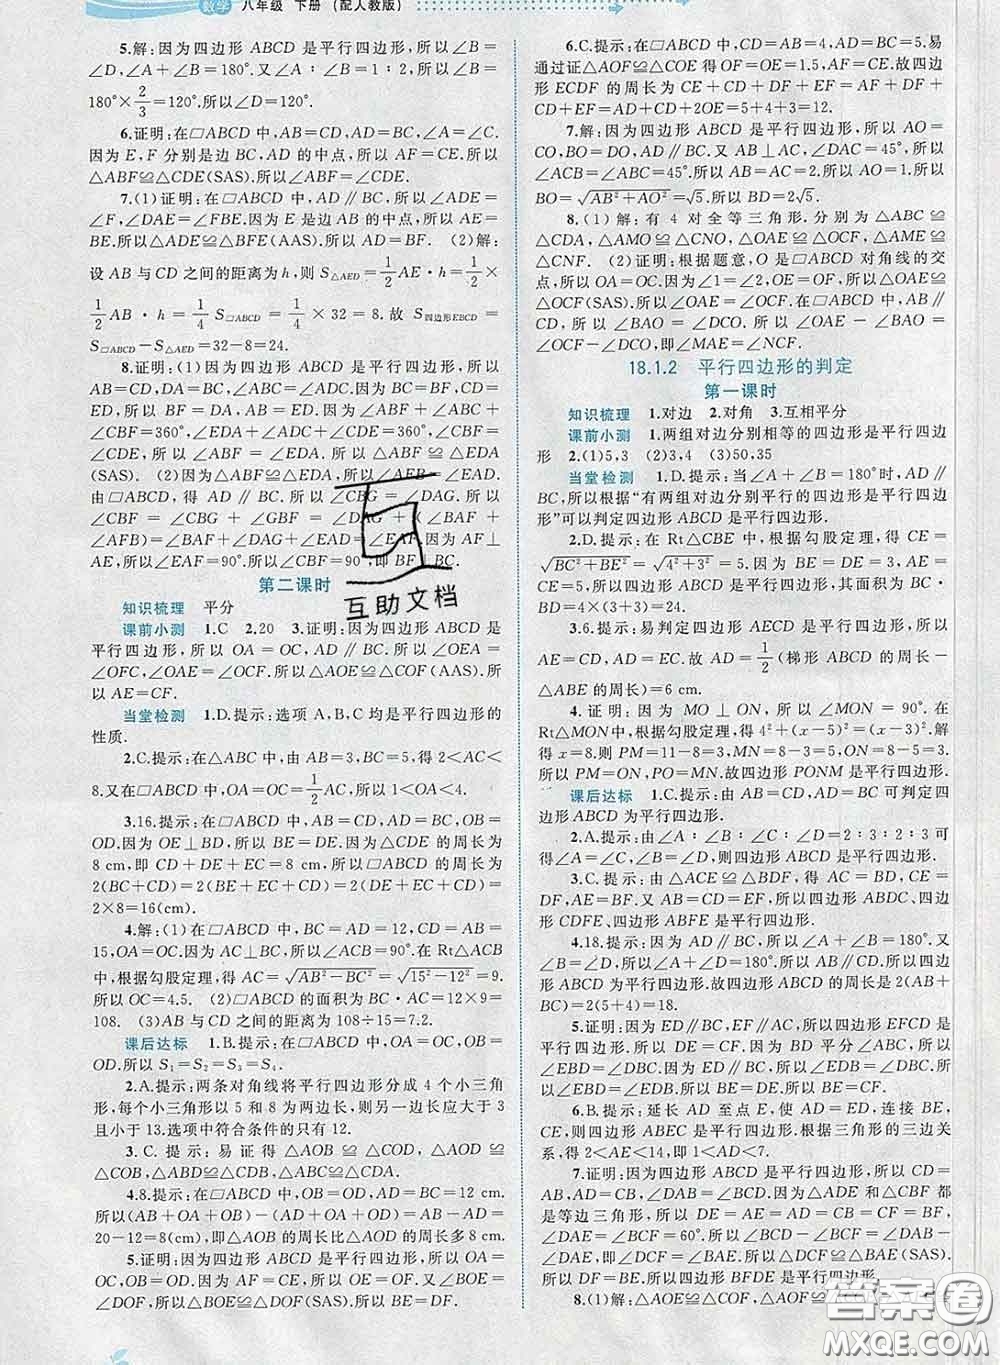 数学 八年级 下册 (配人教版)
5.解:因为四边形 ABCD 是平行四边形,所以∠B=
∠D,∠A+∠B=180°.又∠A∶∠B=1∶2,所以∠B=
180°×2/3=120°.所以∠D=120°.
6.证明:在□ABCD 中,AB=CD,AD=BC,∠A=∠C.
因为 E,F 分别是边 BC,AD 的中点,所以 AF=CE.所以
△ABF≌△CDE(SAS).所以∠ABF=∠CDE.
7.(1)证明:在□ABCD 中,AD∥BC,所以∠ADE=
∠F,∠DAE=∠FBE.因为 E 是边 AB 的中点,所以 AE=
BE.所以△ADE≌△BFE(AAS).所以 AD=BF. (2)解:
设 AB 与 CD 之间的距离为 h,则 S△AED=1/2AE·h=1/2×
1/2AB·h=1/4S□ABCD=1/4×32=8.故 S四边形EBCD=
S□ABCD−S△AED=32−8=24.
8.证明:(1)因为四边形 ABCD 是平行四边形,所以
AB=CD,AD=BC,∠ABC=∠ADC.因为 BF=BC,CD=
DE,所以 BF=DA,AB=ED.因为∠ABF+∠ABC+
∠CBF=360°,∠EDA+∠ADC+∠CDE=360°,∠CBF=
∠CDE,所以∠ABF=∠EDA.所以△ABF≌△EDA
(SAS). (2)因为△ABF≌△EDA,所以∠AFB=∠EAD.
由□ABCD,得 AD∥BC.所以∠CBG=∠DAG.所以
∠CBF=∠CBG+∠GBF=∠DAG+(∠BAF+
∠AFB)=∠BAF+∠DAG+∠EAD=∠EAF.因为 AF⊥
AE,所以∠EAF=90°.所以∠CBF=90°,即 BF⊥BC.
第二课时
知识梳理 平分
课前小测 1.C 2.20 3.证明:因为四边形 ABCD 是
平行四边形,所以 OA=OC,AD∥BC.所以∠OEA=
∠OFC,∠OAE=∠OCF.所以△AOE≌△COF(AAS).所
以 AE=CF.
当堂检测 1.D.提示:选项 A,B,C 均是平行四边形的
性质.
2.C.提示:在△ABC 中,因为 AB=3,BC=5,得 2<AC<
8.又在□ABCD 中,OA=OC=1/2AC,所以 1<OA<4.
3.16.提示:在□ABCD 中,AB=CD,AD=BC,OB=
OD.因为 OE⊥BD,所以 BE=DE.因为△CDE 的周长为
8 cm,即 CD+DE+EC=8 cm.所以□ABCD 的周长为
2(BC+CD)=2(BE+EC+CD)=2(DE+EC+CD)=
2×8=16(cm).
4.解:(1)在□ABCD 中,BC=AD=12,CD=AB=
15,OA=OC.因为 AC⊥BC,所以∠ACB=90°.在 Rt△ACB
中,根据勾股定理,得 AC=√AB²−BC²=√15²−12²=9.
所以 OC=4.5. (2)□ABCD 的面积为 BC·AC=12×9=
108. (3)AB 与 CD 之间的距离为 108÷15=7.2.
课后达标 1.B.提示:在□ABCD 中,OA=OC,OB=
OD.所以 S₁=S₂=S₃=S₄.
2.A.提示:两条对角线将平行四边形分成 4 个小三角
形,每个小三角形以 5 和 8 为两边,则另一边长应大于 3
且小于 13.选项中符合条件的只有 12.
3.C.提示:易证得△AOB≌△COD,△AOD≌
△COB,△ABD≌△CDB,△ABC≌△CDA.
4.8.提示:在□ABCD 中,OB=OD,AD=BC=12 cm.
所以(AB+OA+OB)−(AD+OA+OD)=AB−AD=
20−12=8(cm),即△AOB 的周长比△AOD 的周长多 8 cm.
5.证明:因为四边形 ABCD 是平行四边形,所以 OA=
OC,OB=OD.因为 AF=CE,所以 OE=OF.因为∠BOE=
∠DOF,所以△BOE≌△DOF(SAS).所以 BE=DF.
6.C.提示:在□ABCD 中,CD=AB=4,AD=BC=5.易
通过证△AOF≌△COE 得 OF=OE=1.5,AF=CE.故四边
形 ECDF 的周长为 CE+CD+DF+EF=AF+DF+
CD+EF=AD+CD+2OE=5+4+3=12.
7.解:因为四边形 ABCD 是平行四边形,所以 AO=
CO,BO=DO,AD∥BC.又 AB⊥AC,∠DAC=45°,所以
∠ACB=∠ABC=45°.所以 AB=AC=2.所以 AO=1.所以
BO=√AB²+AO²=√5.所以 BD=2√5.
8.(1)解:有 4 对全等三角形.分别为△ABC≌
△CDA,△AMO≌△CNO,△OAE≌△OCF,△AME≌
△CNF. (2)证明:根据题意,O 是□ABCD 对角线的交
点,所以 OA=OC.因为∠1=∠2,OE=OF,所以△OAE≌
△OCF(SAS).所以∠OAE=∠OCF.在□ABCD 中,AB∥
CD,所以∠BAO=∠DCO.所以∠BAO−∠OAE=
∠DCO−∠OCF,即∠MAE=∠NCF.
18.1.2 平行四边形的判定
第一课时
知识梳理 1.对边 2.对角 3.互相平分
课前小测 1.两组对边分别相等的四边形是平行四边
形 2.(1)5,3 (2)3,4 (3)50,35
当堂检测 1.D.提示:当∠A+∠B=180°时,AD∥
BC,所以根据“有两组对边分别平行的四边形是平行四边
形”可以判定四边形 ABCD 是平行四边形.
2.D.提示:在 Rt△CBE 中,根据勾股定理,得 CE=
√BC²+BE²=√4²+3²=5.因为 BE=DE=3,AE=
CE=5,所以四边形 ABCD 是平行四边形,其面积为 BC·
BD=4×(3+3)=24.
3.6.提示:易判定四边形 AECD 是平行四边形,所以
AE=CD,AD=EC.故 AD=1/2(梯形 ABCD 的周长−
△ABE 的周长)=6 cm.
4.证明:因为 MO⊥ON,所以∠MON=90°.在
Rt△MON 中,根据勾股定理,得 4²+(x−5)²=(x−3)².解
得 x=8.则 PM=11−8=3,MN=8−3=5,ON=8−5=3.
所以 PM=ON,PO=MN.故四边形 PONM 是平行四边形.
课后达标 1.C.提示:由 AB=CD,AD=BC 可判定四
边形 ABCD 为平行四边形.
2.A.提示:由∠A∶∠B∶∠C∶∠D=2∶3∶2∶3 可
得∠A=∠C,∠B=∠D,则四边形 ABCD 是平行四边形.
3.C.提示:由△ACE≌△BDF,得 AC=BD,AE=
BF,所以 AB=CD=EF,所以四边形 ABDC、四边
形 CDFE、四边形 ABFE 是平行四边形.
4.18.提示:因为 AD∥BC,所以∠A+∠B=180°.又
∠A=∠C,所以∠C+∠B=180°.所以 AB∥CD.所以四边形
ABCD 为平行四边形.故四边形 ABCD 的周长是 2(AB+
BC)=2(5+4)=18.
5.证明:因为 ED∥BC,EF∥AC,所以四边形 EFCD 是
平行四边形.所以 DE=CF.因为 BD 平分∠ABC,所以
∠EBD=∠DBC.因为 ED∥BC,所以∠EDB=∠DBC.所以
∠EBD=∠EDB.所以 BE=DE.所以 BE=CF.
6.B.提示:延长 AD 至点 E,使 AD=ED,连接 BE,
CE,则四边形 ABEC 是平行四边形.根据三角形的三边关
系,得 2<AE<14,即 1<AD<7.
7.证明:因为四边形 ABCD 是平行四边形,所以 CD=
AB,AD=CB,∠DAB=∠BCD.因为△ADE 和△CBF 都
是等边三角形,所以 DE=AE=AD=CB=CF=BF,
∠DAE=∠BCF=60°.所以∠BCD−∠BCF=∠DAB−
∠DAE,即∠DCF=∠BAE.所以△DCF≌△BAE(SAS).
所以 DF=BE.所以四边形 BFDE 是平行四边形.
8.(1)解:△AOE≌△COF,
互助文档
答案圈
MXQE.COM